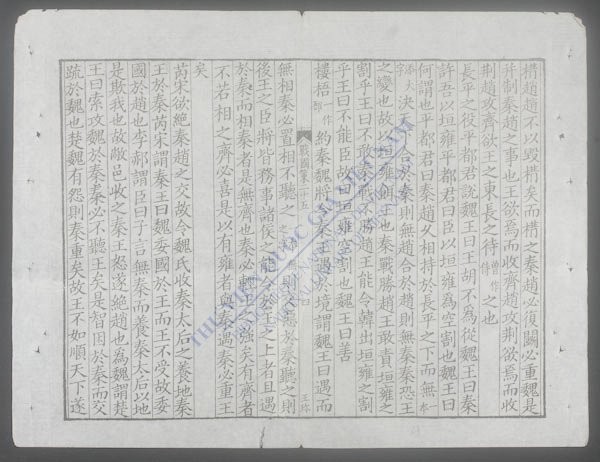 搆趙趙不以毀搆矣而搆之秦趙必復鬬必重魏是
并制秦趙之事也王欲焉而收齊趙攻荊欲焉而收
荊趙攻齊欲王之東長之待曾作侍之也
長平之役平都君說魏王曰王胡不爲從魏王曰秦
許吾以垣雍平都君曰臣以垣雍爲空割也魏王曰
何謂也平都君曰秦趙久相持於長平之下而無
決天下合於秦則無趙合於趙則無秦秦恐王
之變也故以垣雍餌王也秦戰勝趙王敢責垣雍之
割乎王曰不敢秦戰不勝趙王能令韓出垣雍之割
乎王曰不能臣故曰垣雍空割也魏王曰善
樓梧一作約秦魏將令秦王遇於境謂魏王曰遇而
戰國策二十五
無相秦必置相不聽之則交惡於秦聽之則
後王之臣將皆務事諸侯之能令於王之上者且遇
於秦而相秦者是無齊也秦必輕王之強矣有齊者
不若相之齊必喜是以有雍者與秦遇秦必重王
矣
芮宋欲絶秦趙之交故令魏氏收秦太后之養地秦
王於秦芮宋謂秦王曰魏委國於王而王不受故委
國於趙也李郝謂臣曰子言無秦而養秦太后以地
是欺我也故敝邑收之秦王怒遂絶趙也爲魏謂楚
王曰索攻魏於秦秦必不聽王矣是智困於秦而交
疏於魏也楚魏有怨則秦重矣故王不如順天下遂
THƯ VIỆN QUỐC GIA VIỆT NAM